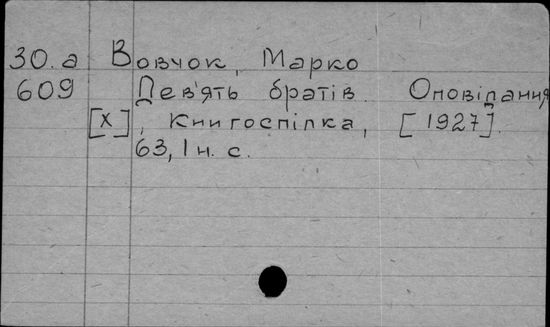 30.а Вовчок, Марко
609 Дев'ять братів. Оповідання
[х], Книгоспілка, [1927].
63, 1 н. с.